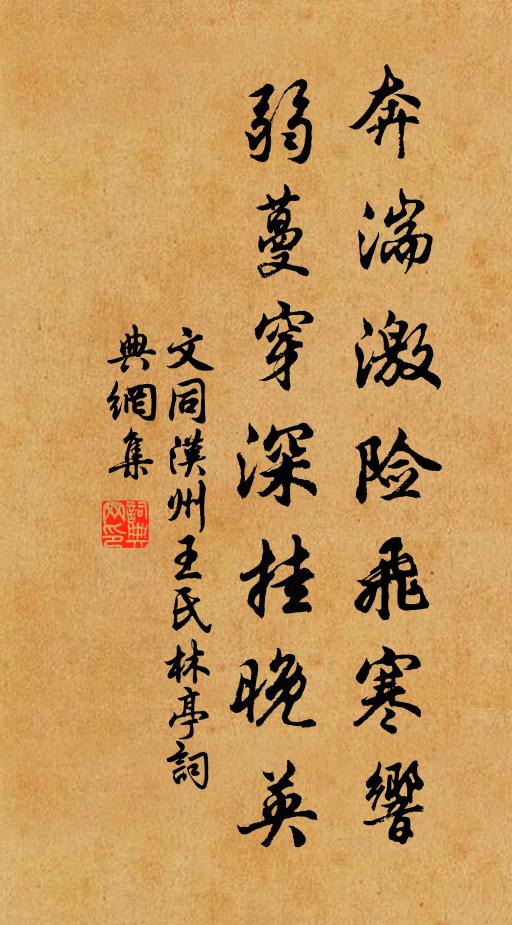 奔湍激险飛寒響
弱蔓穿深挂晚英
文同漢州王氏林亭詞
典網集
詞典網印